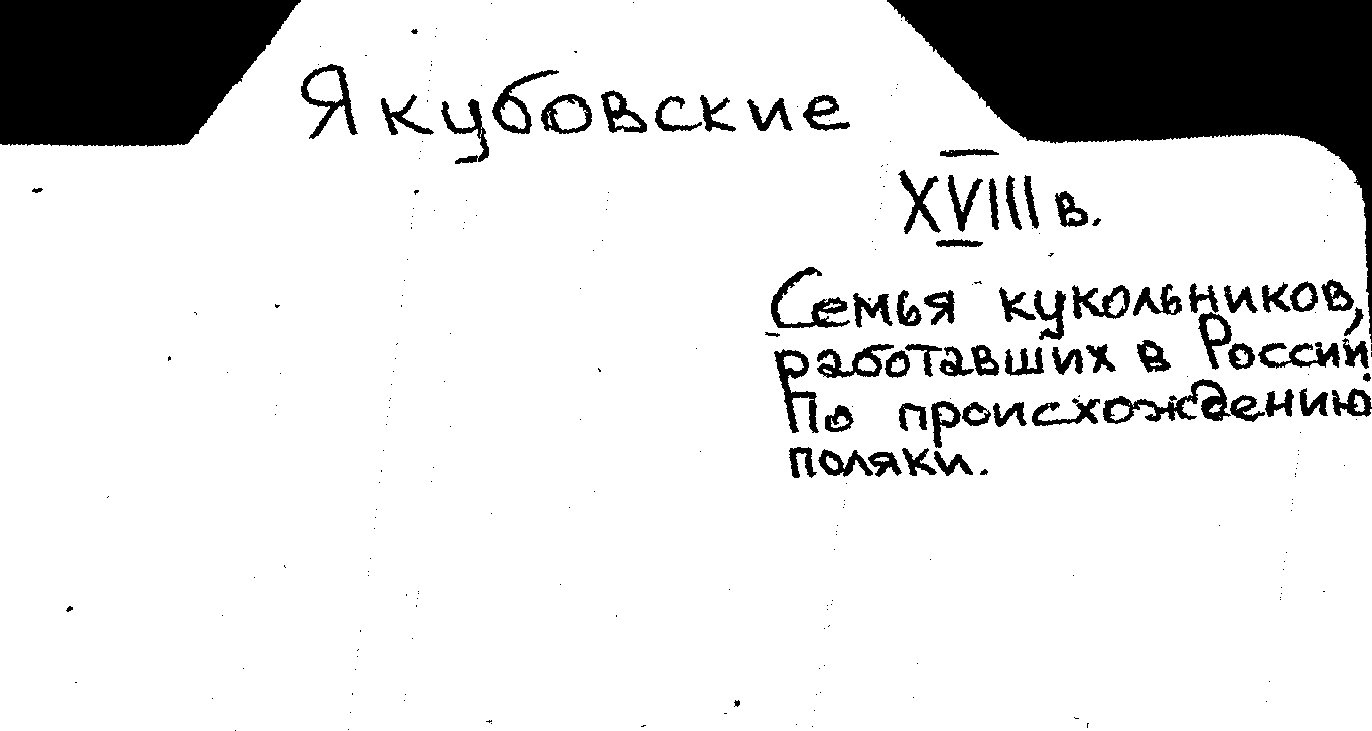 Якубовские
XVIII в.
Семья кукольников,
работавших в России.
По происхождению
поляки.